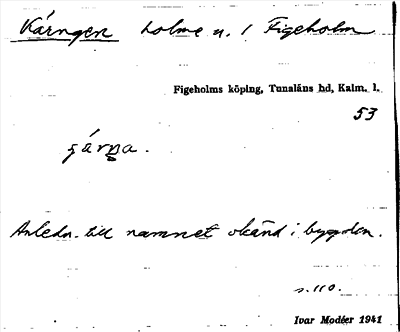 Kárngen holme n. / Figeholm
Figeholms köping, Tunaläns hd, Kalm. l.
53
gárna.
Anledn. till namnet okänd i bygden.
s. 110.
Ivar Modéer 1941